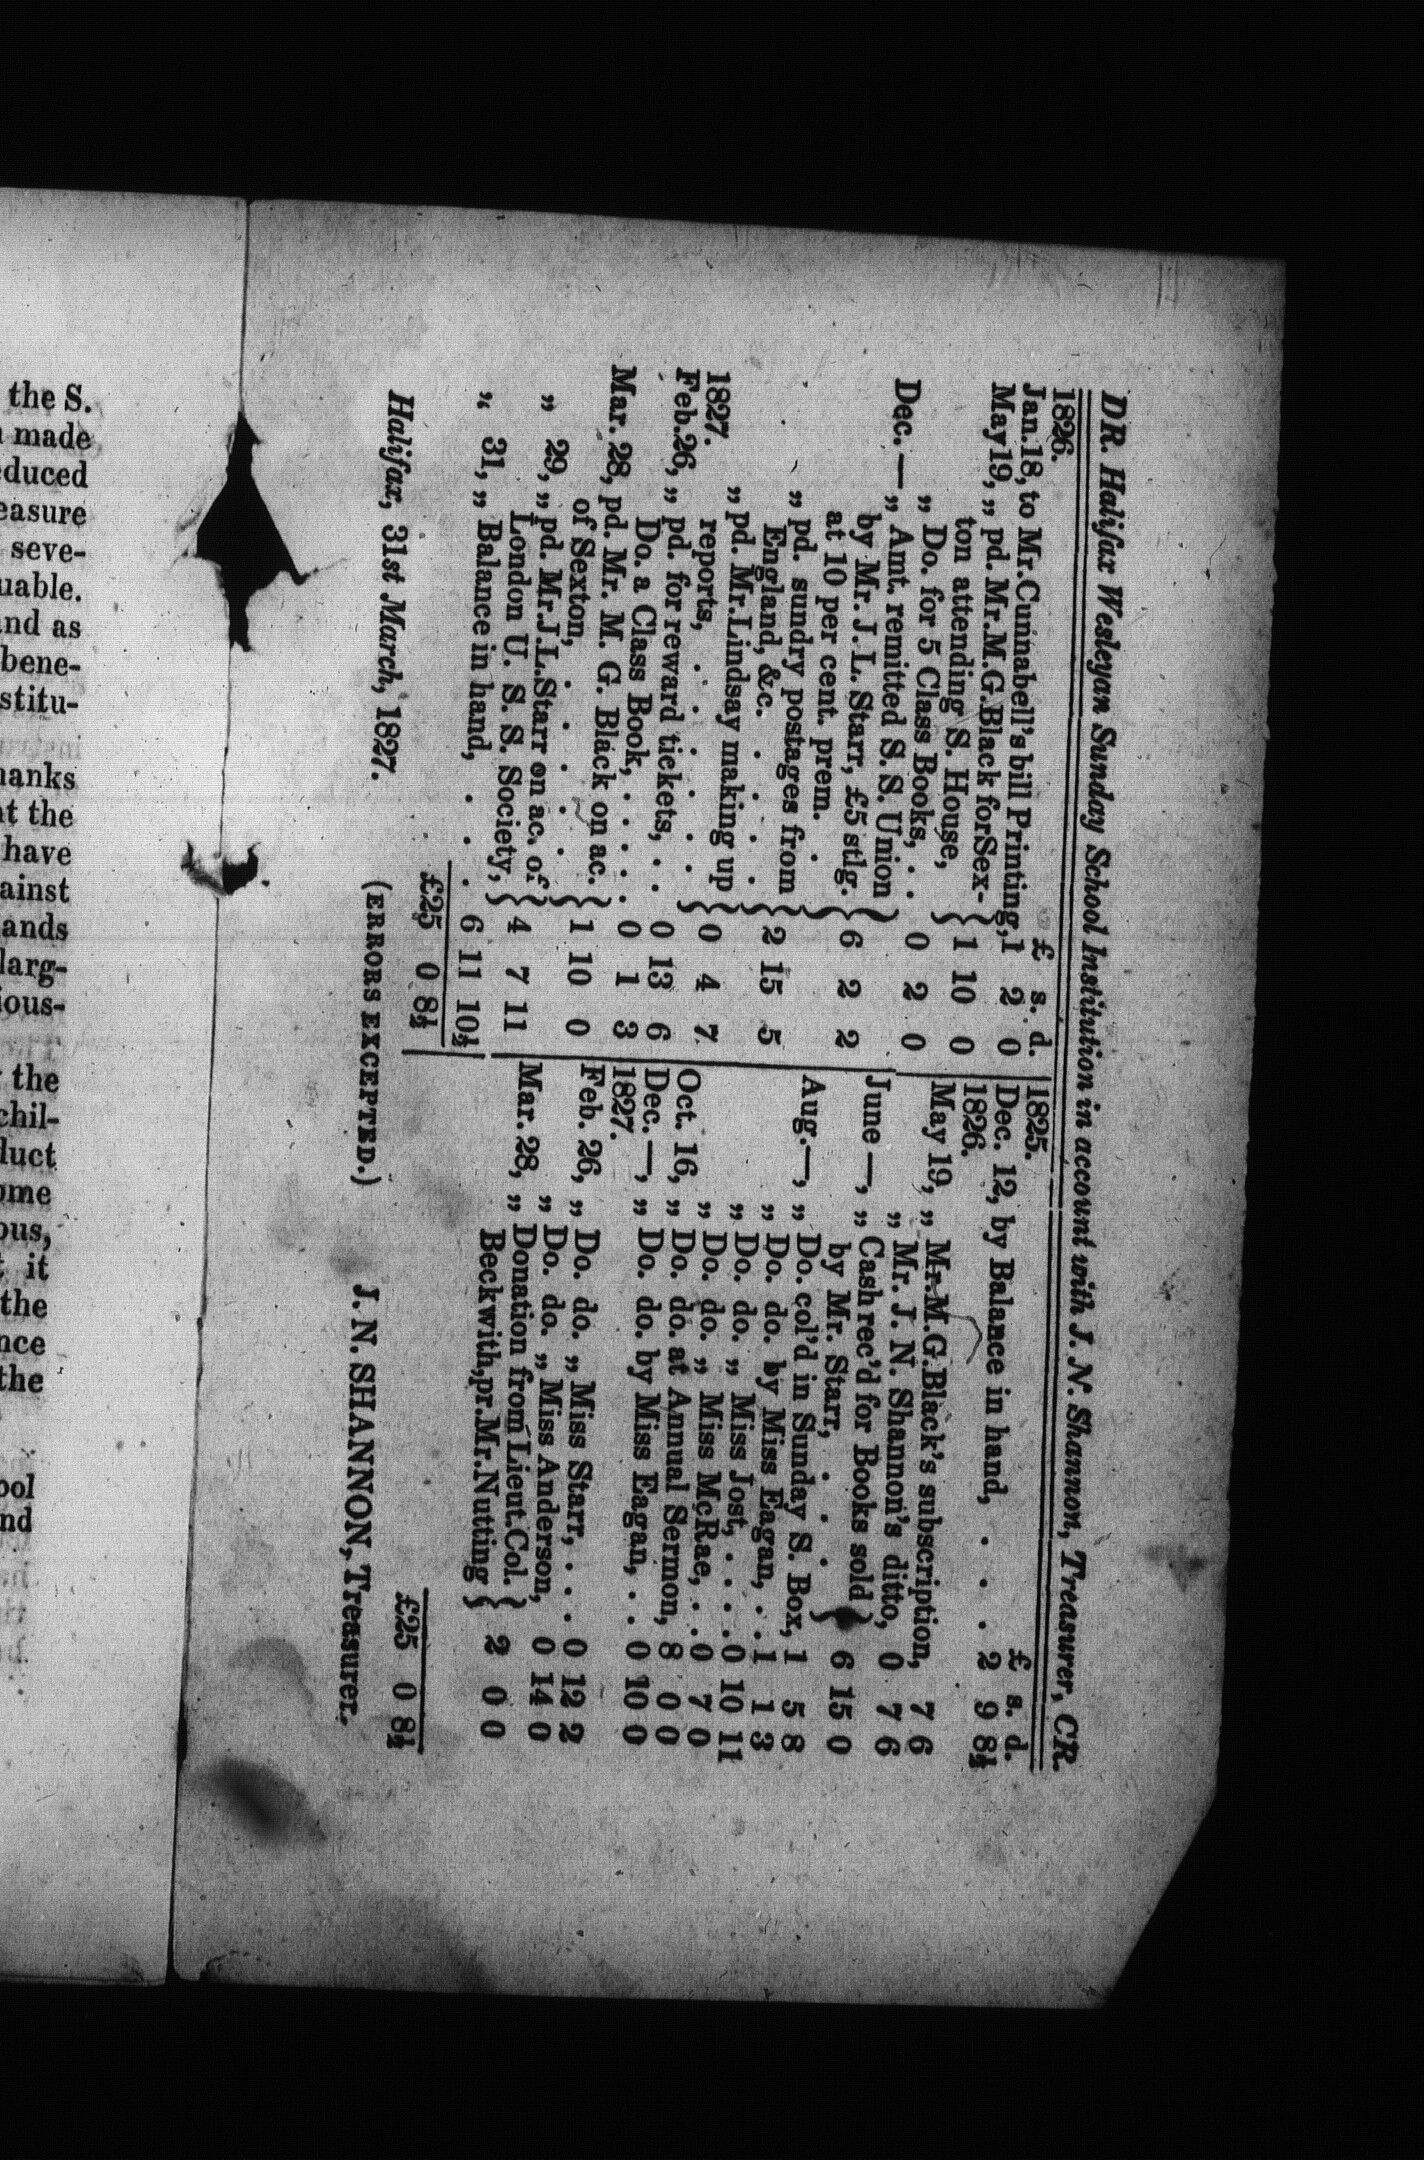 the S.
made
educed
easure
seve-
uable.
and as
bene-
stitu-
hanks
at the
have
ainst
ands
larg-
ious-
the
chil-
duct
ome
ous,
it
the
nce
the
ool
nd
DR. Halifax Wesleyan Sunday School Institution in account with J. N. Shannon, Treasurer, CR.
1826. £ s. d.
Jan. 18, to Mr. Cunnabell's bill Printing, 1 2 0
May 19, „ pd. Mr. M. G. Black for Sex-
ton attending S. House, } 1 10 0
„ Do. for 5 Class Books, . . 0 2 0
Dec. — „ Amt. remitted S. S. Union
by Mr. J. L. Starr, £5 stlg. } 6 2 2
at 10 per cent. prem. .
„ pd. sundry postages from
England, &c. . . . . } 2 15 5
„ pd. Mr. Lindsay making up
reports, . . . . . . } 0 4 7
1827.
Feb. 26, „ pd. for reward tickets, . . 0 13 6
Do. a Class Book, . . . . . 0 1 3
Mar. 28, pd. Mr. M. G. Black on ac.
of Sexton, . . . . . } 1 10 0
„ 29, „ pd. Mr. J. L. Starr on ac. of
London U. S. S. Society, } 4 7 11
„ 31, „ Balance in hand, . . . 6 11 10½
£25 0 8½
1825. £ s. d.
Dec. 12, by Balance in hand, . . . . 2 9 8½
1826.
May 19, „ Mr. M. G. Black's subscription, 7 6
„ Mr. J. N. Shannon's ditto, 0 7 6
June —, „ Cash rec'd for Books sold
by Mr. Starr, . . . . } 6 15 0
Aug. —, „ Do. col'd in Sunday S. Box, 1 5 8
„ Do. do. by Miss Eagan, . . 1 1 3
„ Do. do. „ Miss Jost, . . . . 0 10 11
„ Do. do. „ Miss McRae, . . 0 7 0
Oct. 16, „ Do. do. at Annual Sermon, 8 0 0
Dec. —, „ Do. do. by Miss Eagan, . . 0 10 0
1827.
Feb. 26, „ Do. do. „ Miss Starr, . . . 0 12 2
„ Do. do. „ Miss Anderson, 0 14 0
Mar. 28, „ Donation from Lieut. Col.
Beckwith, pr. Mr. Nutting } 2 0 0
£25 0 8½
Halifax, 31st March, 1827. (ERRORS EXCEPTED.) J. N. SHANNON, Treasurer.